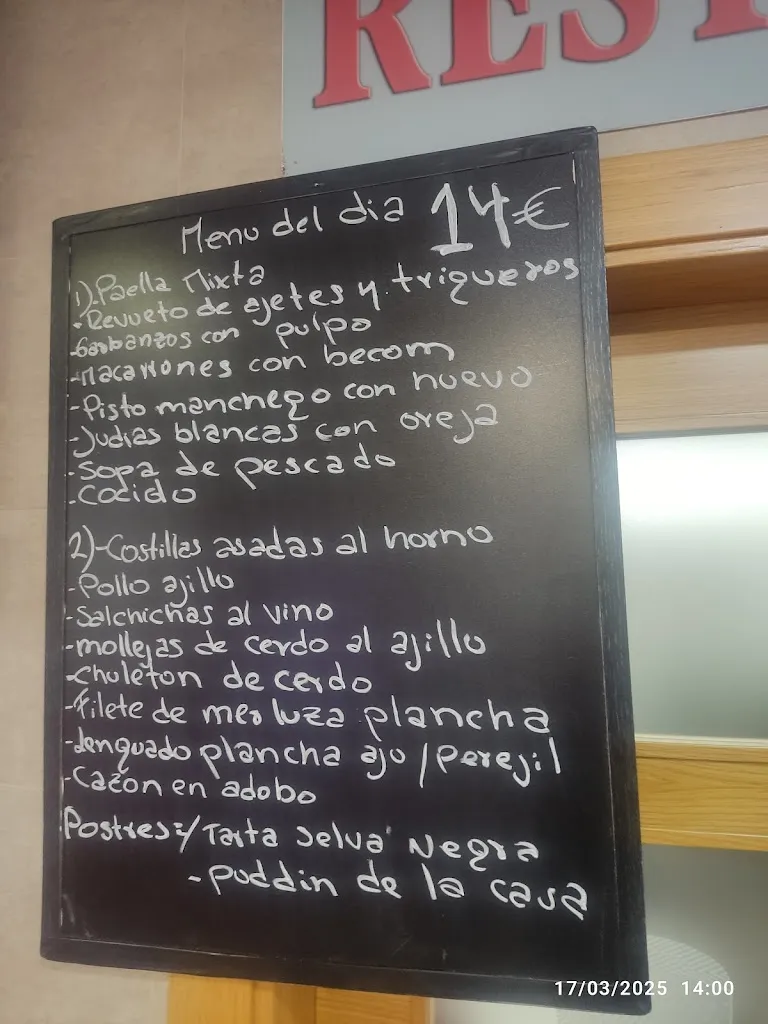 REST
Menu del dia 14€
1).Paella Mixta
-Revuueto de ajetes y trigueros
-Garbanzos con pulpo
-Macarrones con becom
-Pisto manchego con huevo
-Judias blancas con oreja
-Sopa de pescado
-Cocido
2)-Costillas asadas al horno
-Pollo ajillo
-Salchichas al vino
-mollejas de cerdo al ajillo
-Chuleton de cerdo
-Filete de merluza plancha
-lenguado plancha ajo/perejil
-Cazon en adobo
Postres=/Tarta Selva Negra
-puddin de la casa
17/03/2025 14:00